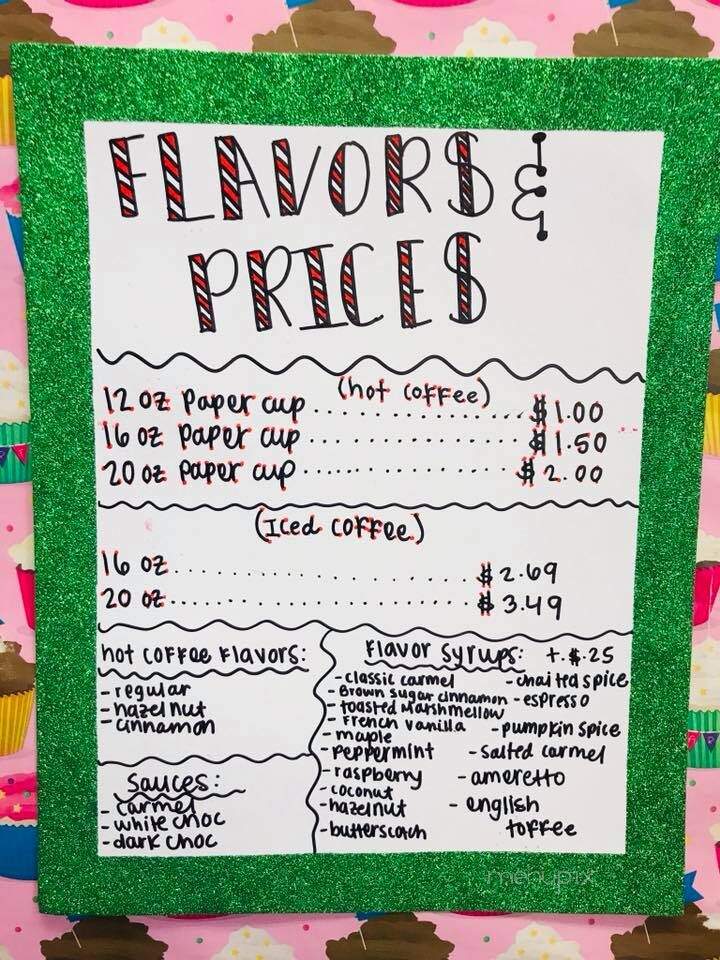 FLAVORS &
PRICES
(hot coffee)
12 oz paper cup .................. $1.00
16 oz paper cup .................. $1.50
20 oz paper cup .................. $2.00
(Iced coffee)
16 oz .................. $2.69
20 oz .................. $3.49
hot coffee flavors:
- regular
- hazelnut
- cinnamon
sauces:
- carmel
- white choc
- dark choc
Flavor syrups: +.$.25
- classic carmel
- Brown sugar cinnamon
- toasted marshmellow
- French vanilla
- maple
- peppermint
- raspberry
- coconut
- hazelnut
- butterscotch
- chai tea spice
- espresso
- pumpkin spice
- salted carmel
- ameretto
- english
toffee
menupix